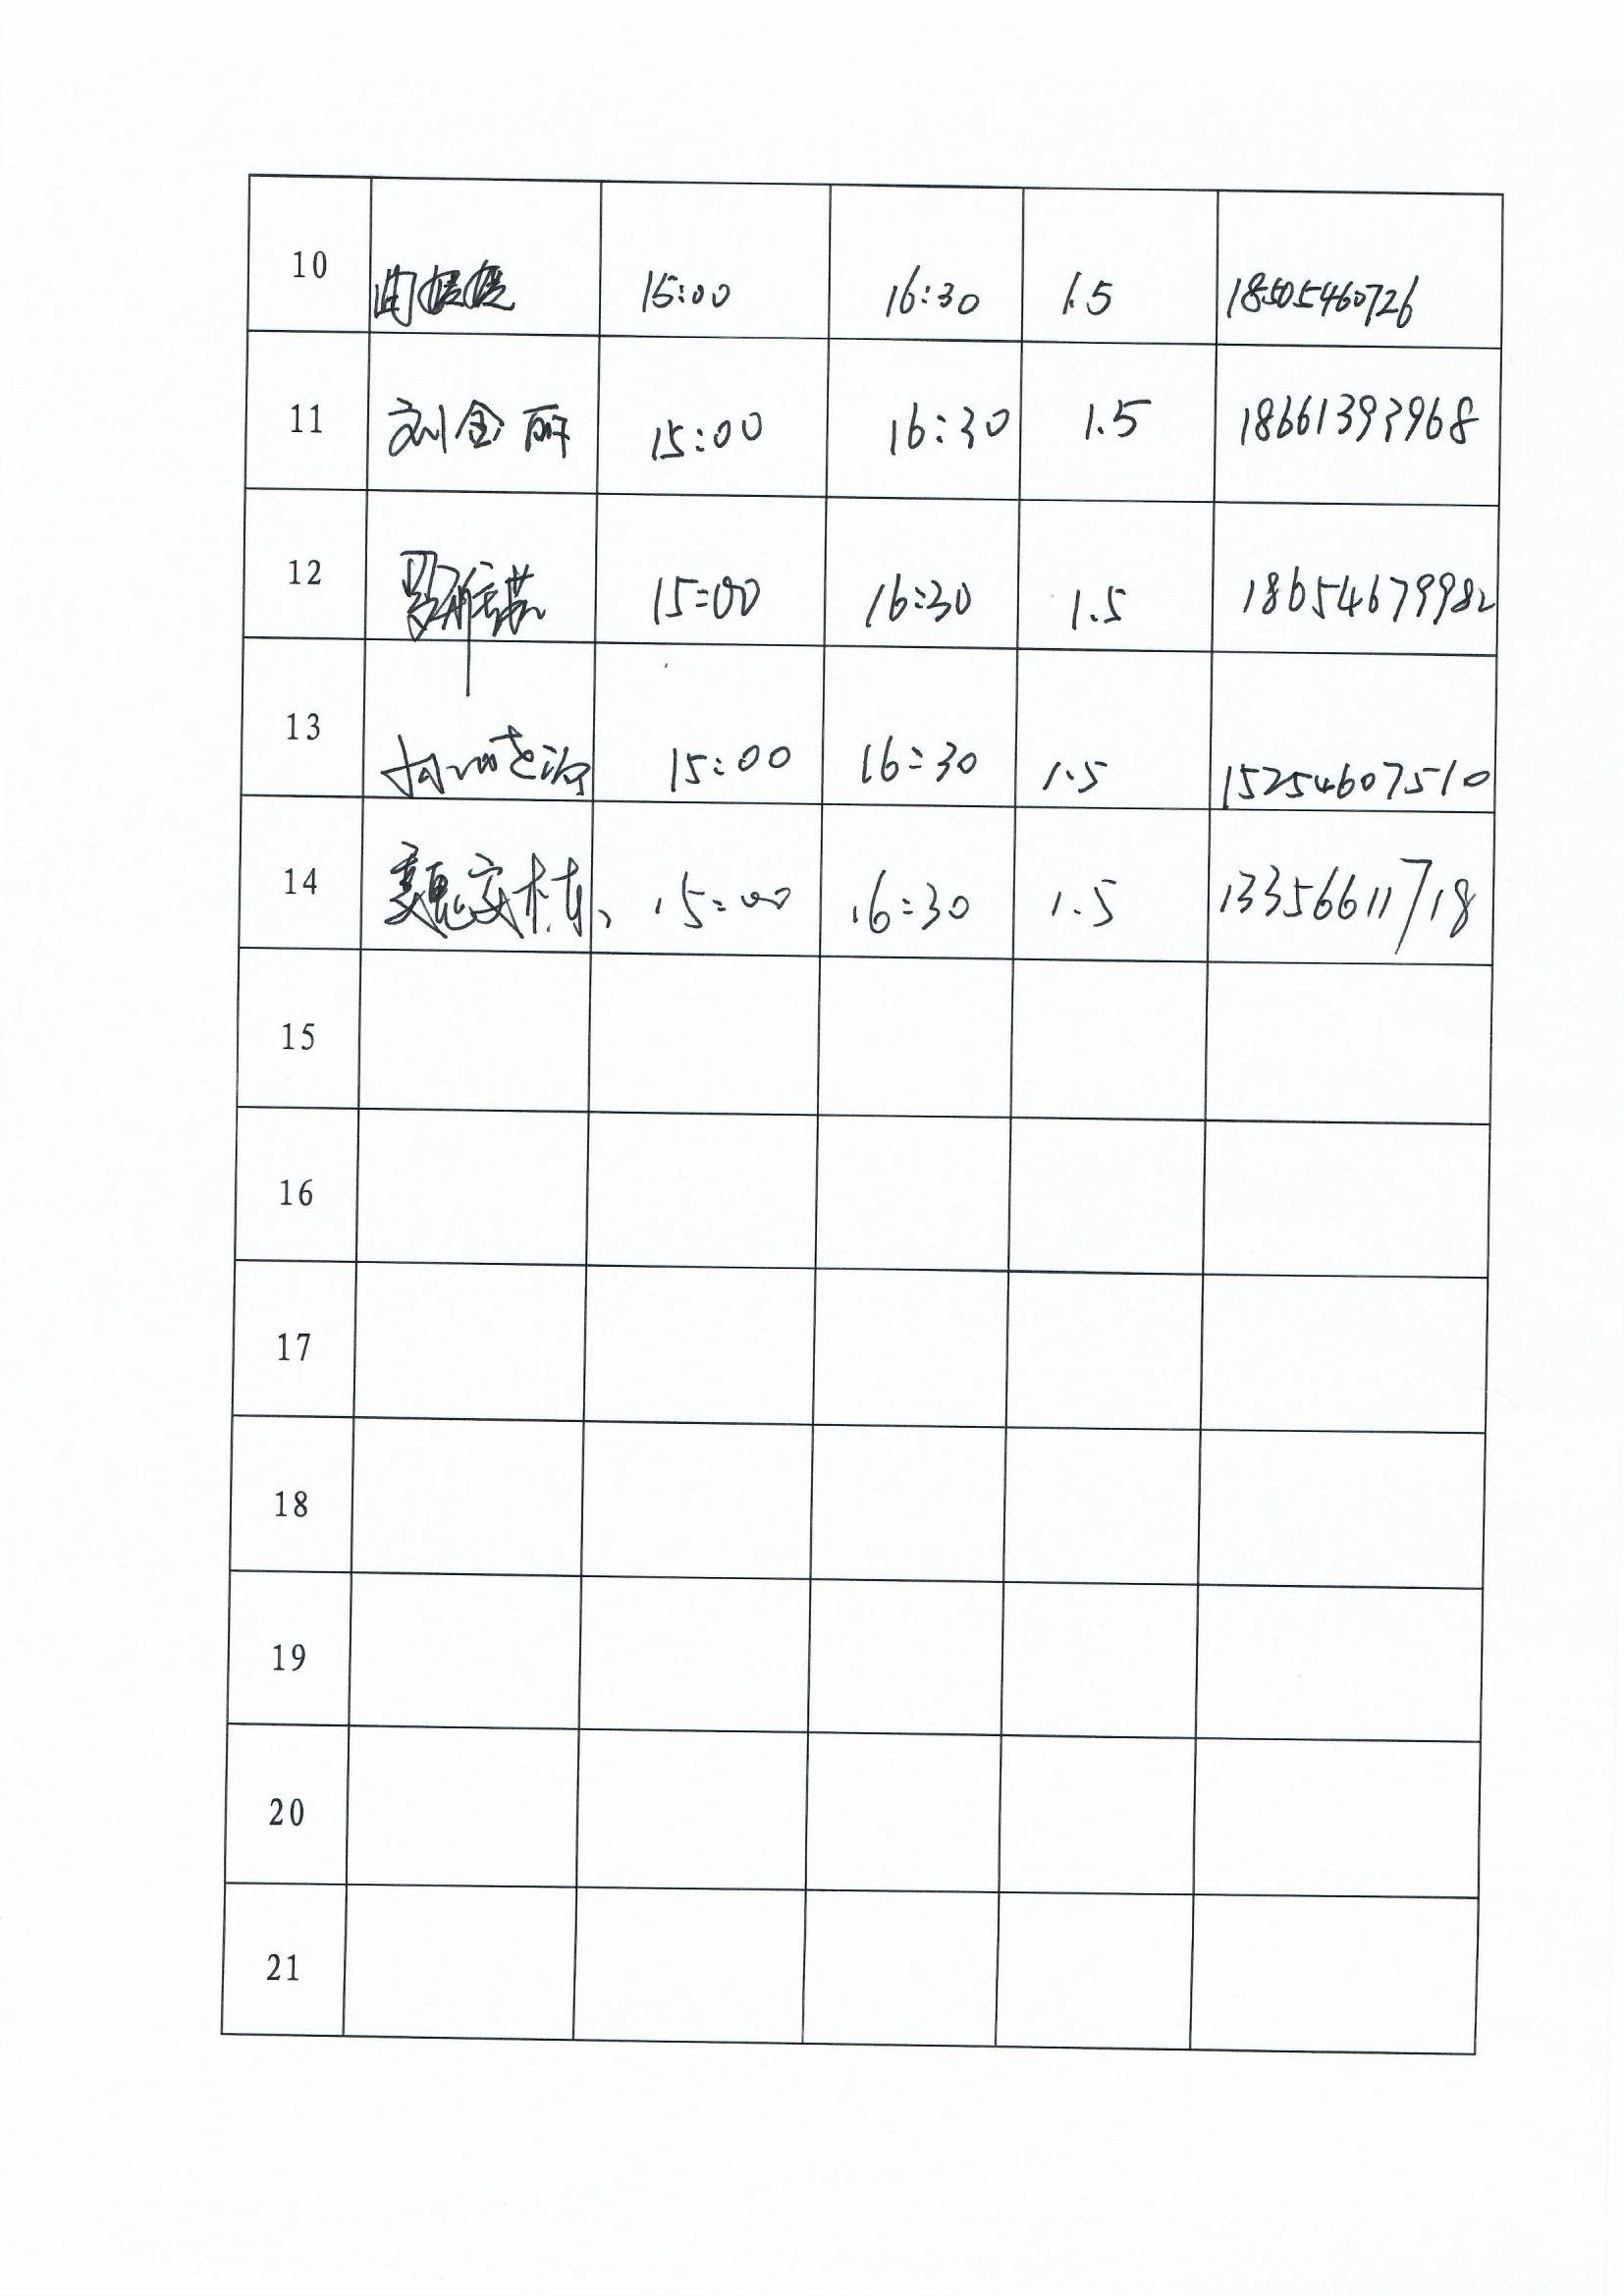 10 15:00 16:30 1.5 18505460726
11 刘金丽 15:00 16:30 1.5 18661393968
12 15:00 16:30 1.5 18654679982
13 15:00 16:30 1.5 15254607510
14 魏安栋 15:00 16:30 1.5 13356611718
15
16
17
18
19
20
21